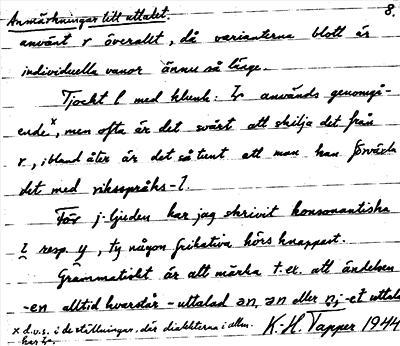 Anmärkningar till uttalet. 8.
använt r överallt, då varianterna blott är
individuella vanor ännu så länge.
Tjockt l med klusil: används genomgå-
ende x, men ofta är det svårt att skilja det från
r, ibland åter är det så tunt att man kan förväxla
det med riksspråks-l.
För j-ljuden har jag skrivit konsonantiska
i resp. y, ty någon frikativa hörs knappast.
Grammatiskt är att märka t.ex. att ändelsen
-en alltid kvarstår -uttalad
x d.v.s. i de ställningar, där dialekterna i allm. K.H. Tapper 1944
har